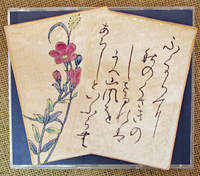 ふくからに
秋のくさきの
しをるれは
むへ山風を
あらし
といふらむ